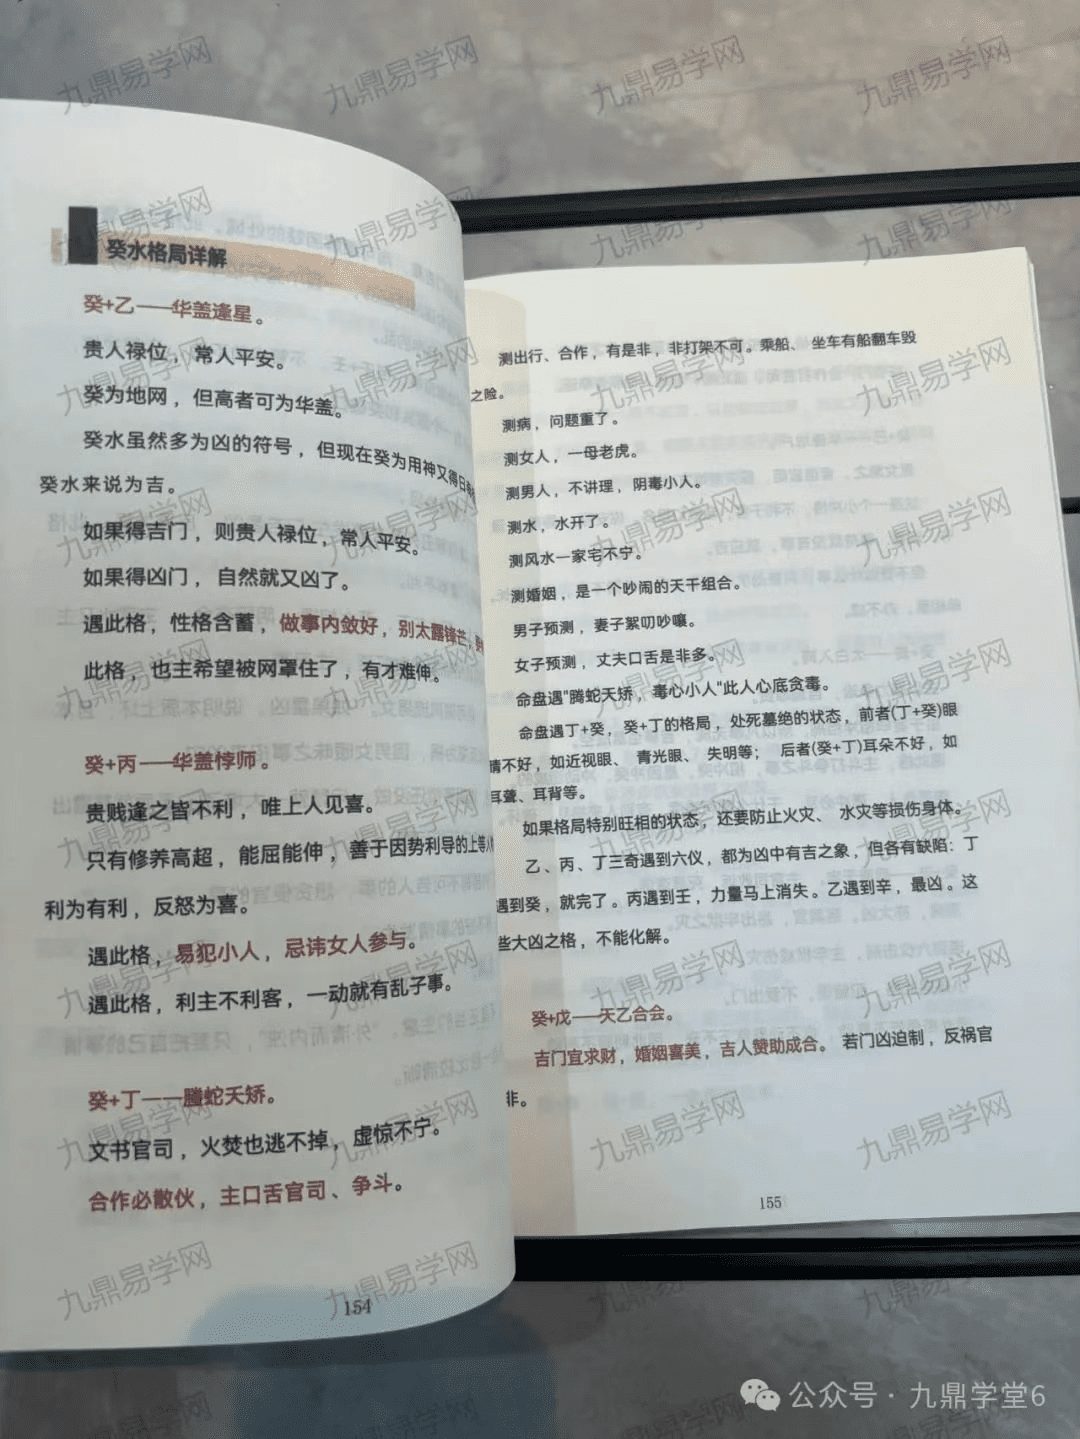 癸水格局详解
癸+乙——华盖逢星。
贵人禄位，常人平安。
癸为地网，但高者可为华盖。
癸水虽然多为凶的符号，但现在癸为用神又得日
癸水来说为吉。
如果得吉门，则贵人禄位，常人平安。
如果得凶门，自然就又凶了。
遇此格，性格含蓄，做事内敛好，别太露锋芒，
此格，也主希望被网罩住了，有才难伸。
癸+丙——华盖悖师。
贵贱逢之皆不利，唯上人见喜。
只有修养高超，能屈能伸，善于因势利导的上等人
利为有利，反怒为喜。
遇此格，易犯小人，忌讳女人参与。
遇此格，利主不利客，一动就有乱子事。
癸+丁——腾蛇天矫。
文书官司，火焚也逃不掉，虚惊不宁。
合作必散伙，主口舌官司、争斗。
154
测出行、合作，有是非，非打架不可。乘船、坐车有船翻车毁
之险。
测病，问题重了。
测女人，一母老虎。
测男人，不讲理，阴毒小人。
测水，水开了。
测风水一家宅不宁。
测婚姻，是一个吵闹的天干组合。
男子预测，妻子絮叨吵嚷。
女子预测，丈夫口舌是非多。
命盘遇"腾蛇天矫，毒心小人"此人心底贪毒。
命盘遇丁+癸，癸+丁的格局，处死墓绝的状态，前者(丁+癸)眼
睛不好，如近视眼、青光眼、失明等；后者(癸+丁)耳朵不好，如
耳聋、耳背等。
如果格局特别旺相的状态，还要防止火灾、水灾等损伤身体。
乙、丙、丁三奇遇到六仪，都为凶中有吉之象，但各有缺陷：丁
遇到癸，就完了。丙遇到壬，力量马上消失。乙遇到辛，最凶。这
些大凶之格，不能化解。
癸+戊——天乙合会。
吉门宜求财，婚姻喜美，吉人赞助成合。若门凶迫制，反祸官
非。
155
九鼎易学网
公众号·九鼎学堂6